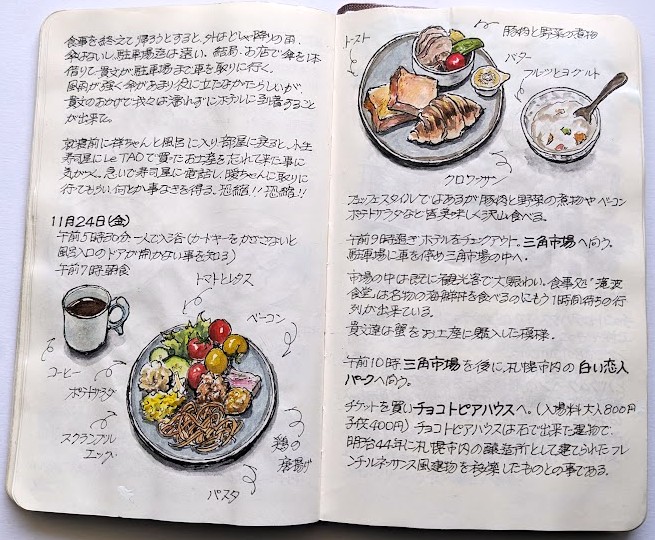 食事を終えて帰ろうとすると、外はどしゃ降りの雨。
傘はないし駐車場迄は遠い。結局、お店で傘を1本
借りて貴文が駐車場まで車を取りに行く。
風雨が強く傘があまり役に立たなかったらしいが、
貴文のおかげで我々は濡れずにホテルに到着すること
が出来た。
就寝前に祥ちゃんと風呂に入り部屋に戻ると、小生
寿司屋にLeTAOで買ったお土産を忘れて来た事に
気がつく。急いで寿司屋に電話し、
行ってもらい何とか事なきを得る。恐縮!!恐縮!!
11月24日(金)
午前5時30分 一人で入浴(カードキーをかざさないと
風呂入口のドアが開かない事を知る)
午前7時 朝食
トマトとレタス
ベーコン
コーヒー
ポテトサラダ
スクランブル
エッグ
鶏の
唐揚げ
パスタ
トースト
豚肉と野菜の煮物
バター
フルーツとヨーグルト
クロワッサン
ブッフェスタイルではあるが豚肉と野菜の煮物やベーコン
ポテトサラダなど皆美味しく沢山食べる。
午前9時過ぎ、ホテルをチェックアウト。三角市場へ向う。
駐車場に車を停め三角市場の中へ。
市場の中は既に観光客で大賑わい。食事処「滝波
食堂」は名物の海鮮丼を食べるのにもう1時間待ちの行
列が出来ている。
貴文達は蟹をお土産に購入した模様。
午前10時、三角市場を後に、札幌市内の白い恋人
パークへ向う。
チケットを買いチョコトピアハウスへ。(入場料大人800円
子供400円)チョコトピアハウスは石で出来た建物で、
明治44年に札幌市内の醸造所として建てられたフレ
ンチルネッサンス風建物を移築したものとの事である。